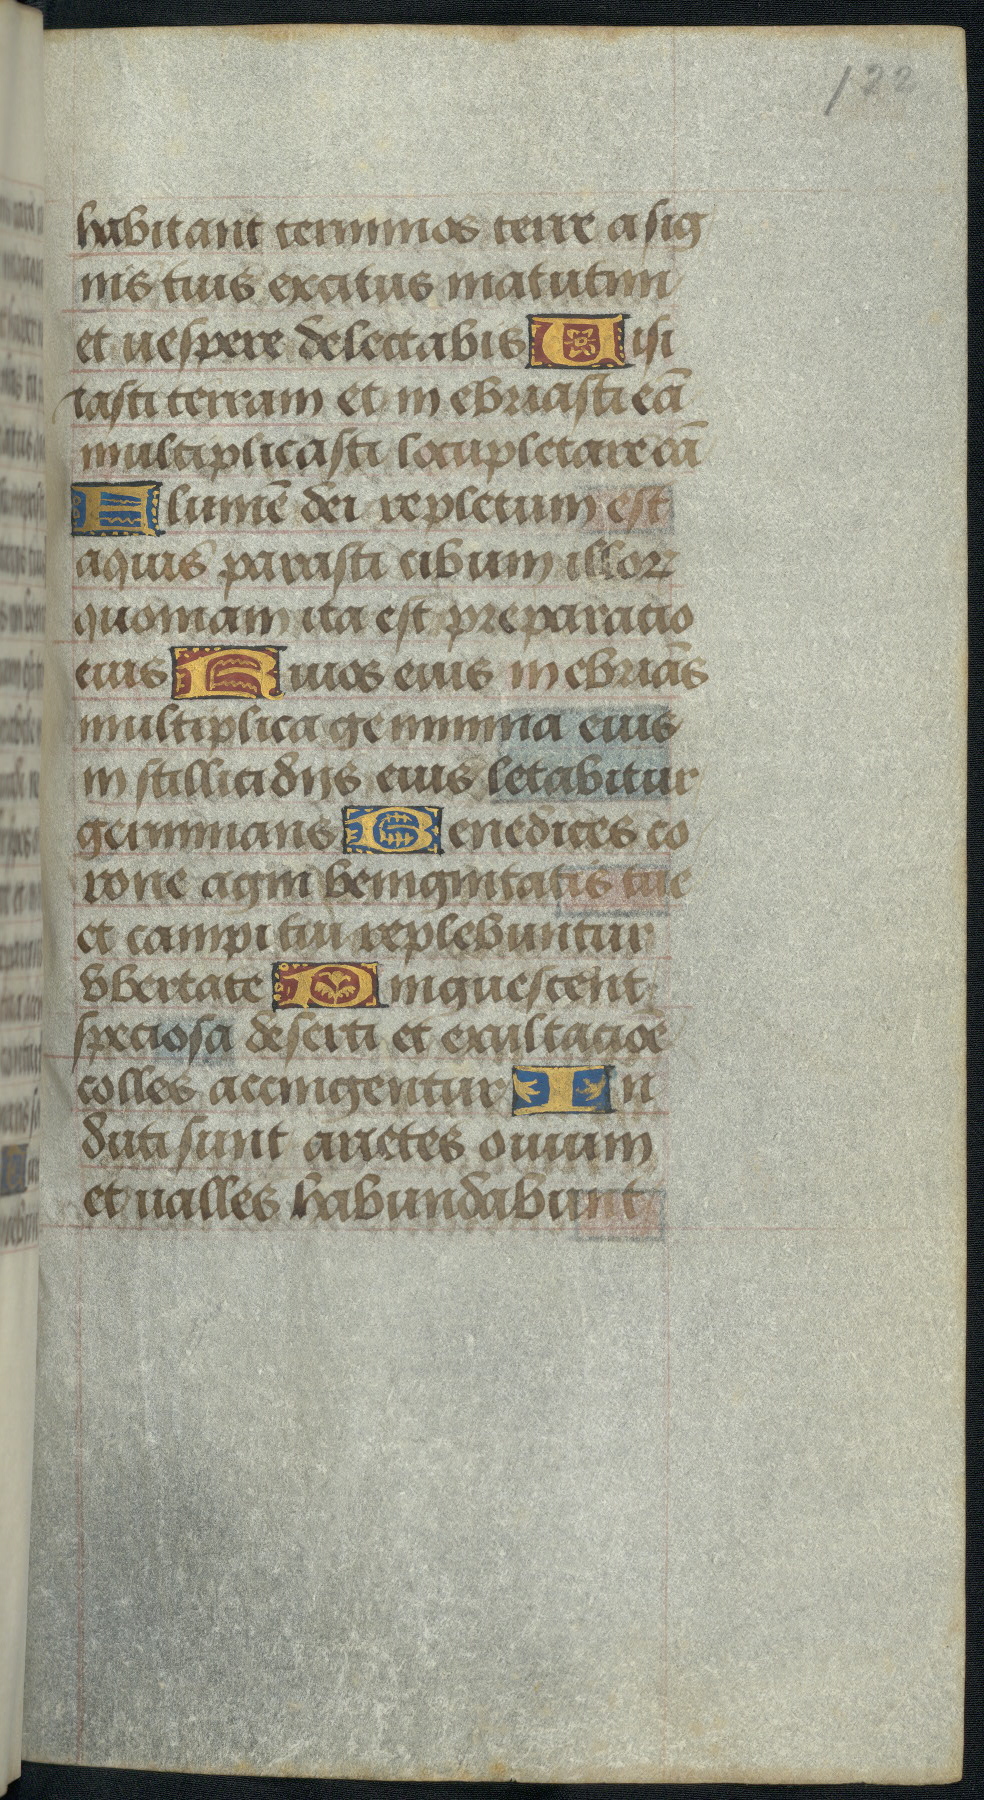 122
habitant terminos terre a sig
nis tuis exitus matutini
et uespere delectabis Uisi
tasti terram et in ebriasti eā
multiplicasti locupletare eā
Flumē dei repletum est
aquis parasti cibum illoꝝ
quoniam ita est preparatio
eius Riuos eius in ebriās
multiplica genimina eius
in stillicidijs eius letabitur
germinans Benedices co
rone agni benignitatis tue
et campi tui replebuntur
vbertate Pinguescent
speciosa deserti et exultacioē
colles accingentur In
duti sunt arietes ouium
et ualles habundabunt